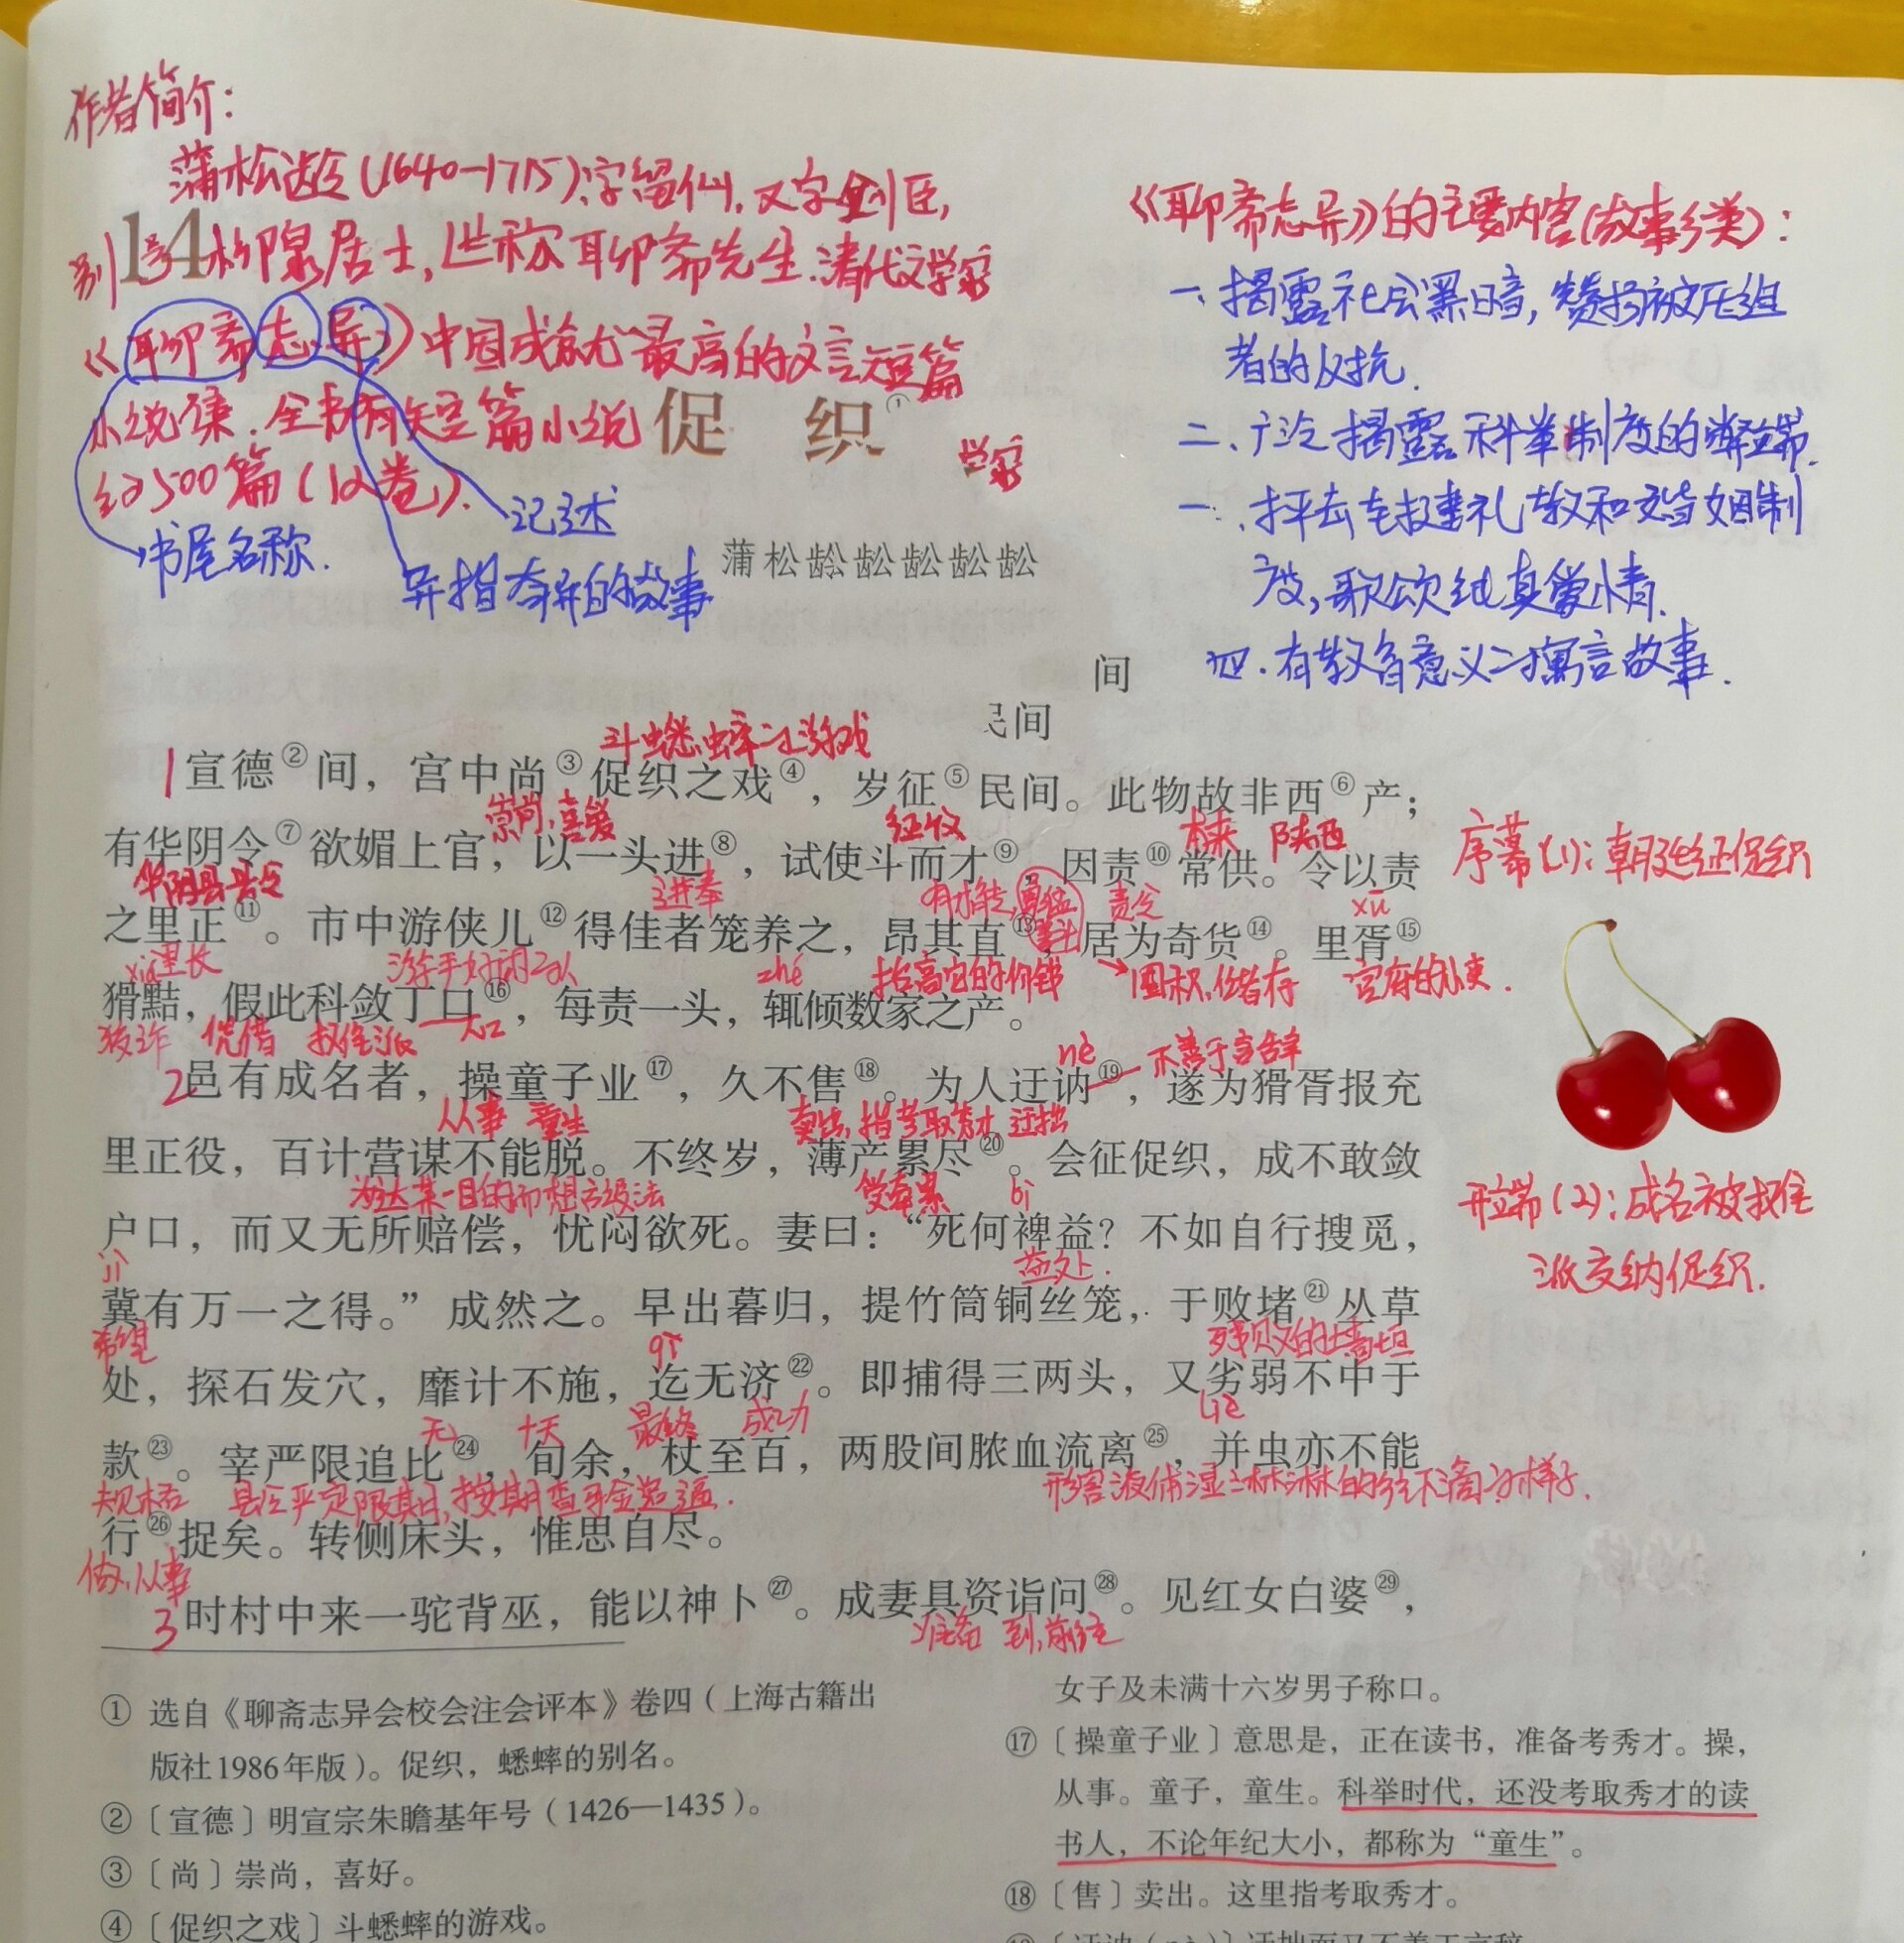 作者简介：
蒲松龄(1640-1715)，字留仙，又字剑臣，
别号柳泉居士，世称聊斋先生.清代文学家
《聊斋志异》中国成就最高的文言短篇
小说集.全书有短篇小说
约500篇(12卷).
学家
书屋名称.
记述
异指奇异的故事
《聊斋志异》的主要内容(故事分类)：
一、揭露社会黑暗，赞扬被压迫
者的反抗.
二、广泛揭露科举制度的弊端.
三、抨击封建礼教和婚姻制
度，歌颂纯真爱情.
四.有教育意义的寓言故事.
14
促 织①
蒲松龄龄龄龄龄
间
民间
斗蟋蟀之游戏
1宣德②间，宫中尚③促织之戏④，岁征⑤民间。此物故非西⑥产；
崇尚，喜爱 征收 本来 陕西
有华阴令⑦欲媚上官，以一头进⑧，试使斗而才⑨，因责⑩常供。令以责
华阴县县令 进奉 有才能，勇猛善斗 责令 xū
之里正⑪。市中游侠儿⑫得佳者笼养之，昂其直⑬，居为奇货⑭。里胥⑮
xiá里长 游手好闲之人 zhé 抬高它的价钱 囤积，储存 官府的小吏.
猾黠，假此科敛丁口⑯，每责一头，辄倾数家之产。
狡诈 凭借 摊派 人口
nè 不善于言辞
2邑有成名者，操童子业⑰，久不售⑱。为人迂讷⑲，遂为猾胥报充
从事 童生 卖出，指考取秀才 迂拙
里正役，百计营谋不能脱。不终岁，薄产累尽⑳。会征促织，成不敢敛
为达某一目的而想方设法 受牵累 bì
户口，而又无所赔偿，忧闷欲死。妻曰：“死何裨益？不如自行搜觅，
jì 益处.
冀有万一之得。”成然之。早出暮归，提竹筒铜丝笼，于败堵㉑丛草
希望 qì 残败的墙垣
处，探石发穴，靡计不施，迄无济㉒。即捕得三两头，又劣弱不中于
无 十天 最终 成功 liè
款㉓。宰严限追比㉔，旬余，杖至百，两股间脓血流离㉕，并虫亦不能
规格 县令严定限期，按期查验追逼. 形容液体湿淋淋的往下滴的样子.
行㉖捉矣。转侧床头，惟思自尽。
做，从事
3时村中来一驼背巫，能以神卜㉗。成妻具资诣问㉘。见红女白婆㉙，
准备 到，前往
序幕(1)：朝廷征促织
开端(2)：成名被摊
派交纳促织.
① 选自《聊斋志异会校会注会评本》卷四（上海古籍出
版社1986年版）。促织，蟋蟀的别名。
② 〔宣德〕明宣宗朱瞻基年号（1426—1435）。
③ 〔尚〕崇尚，喜好。
④ 〔促织之戏〕斗蟋蟀的游戏。
女子及未满十六岁男子称口。
⑰ 〔操童子业〕意思是，正在读书，准备考秀才。操，
从事。童子，童生。科举时代，还没考取秀才的读
书人，不论年纪大小，都称为“童生”。
⑱ 〔售〕卖出。这里指考取秀才。